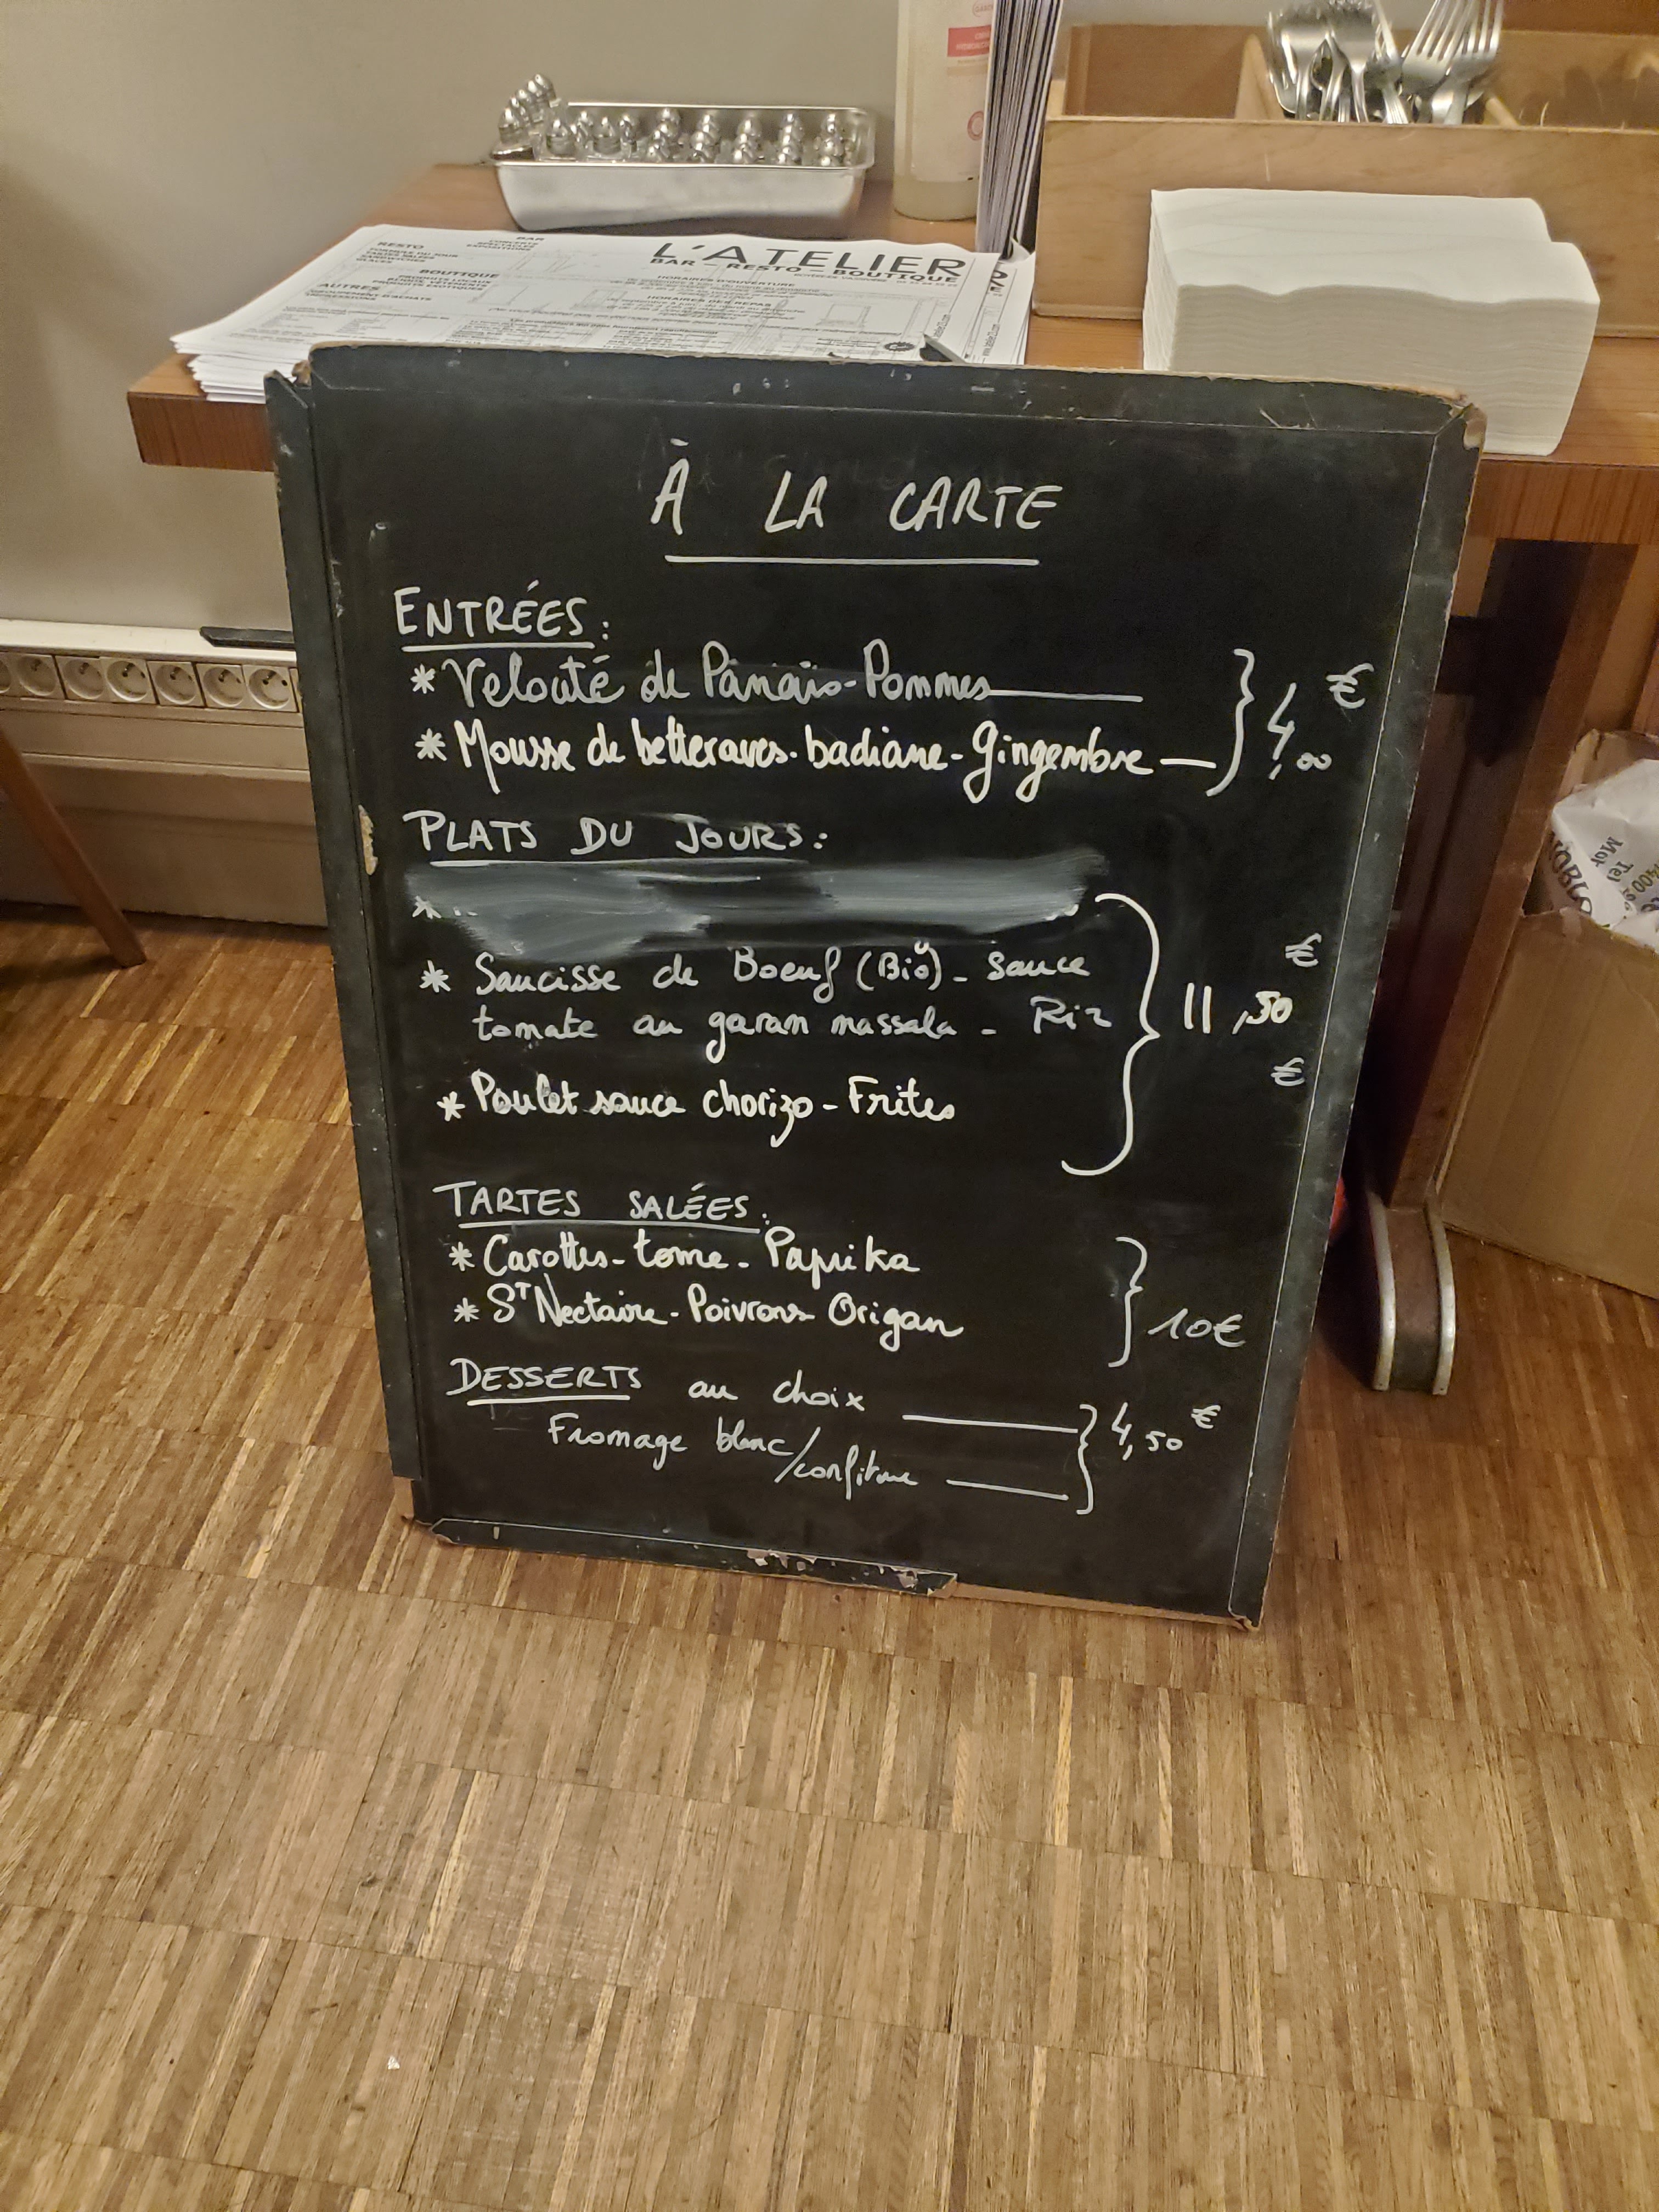 RESTO
BAR
CONCERTS
SPECTACLES
EXPOSITIONS
BOUTIQUE
AUTRES
L'ATELIER
BAR - RESTO - BOUTIQUE
HORAIRES D'OUVERTURE
HORAIRES DES REPAS
À LA CARTE
ENTRÉES :
* Velouté de Panais-Pommes
* Mousse de betteraves-badiane-Gingembre
4,00 €
PLATS DU JOURS :
*
* Saucisse de Boeuf (Bio) - sauce
tomate au garam massala - Riz
* Poulet sauce chorizo - Frites
€
11,50
€
TARTES SALÉES :
* Carottes - tome - Paprika
* ST Nectaire - Poivrons - Origan
10€
DESSERTS au choix
Fromage blanc/confiture
4,50 €